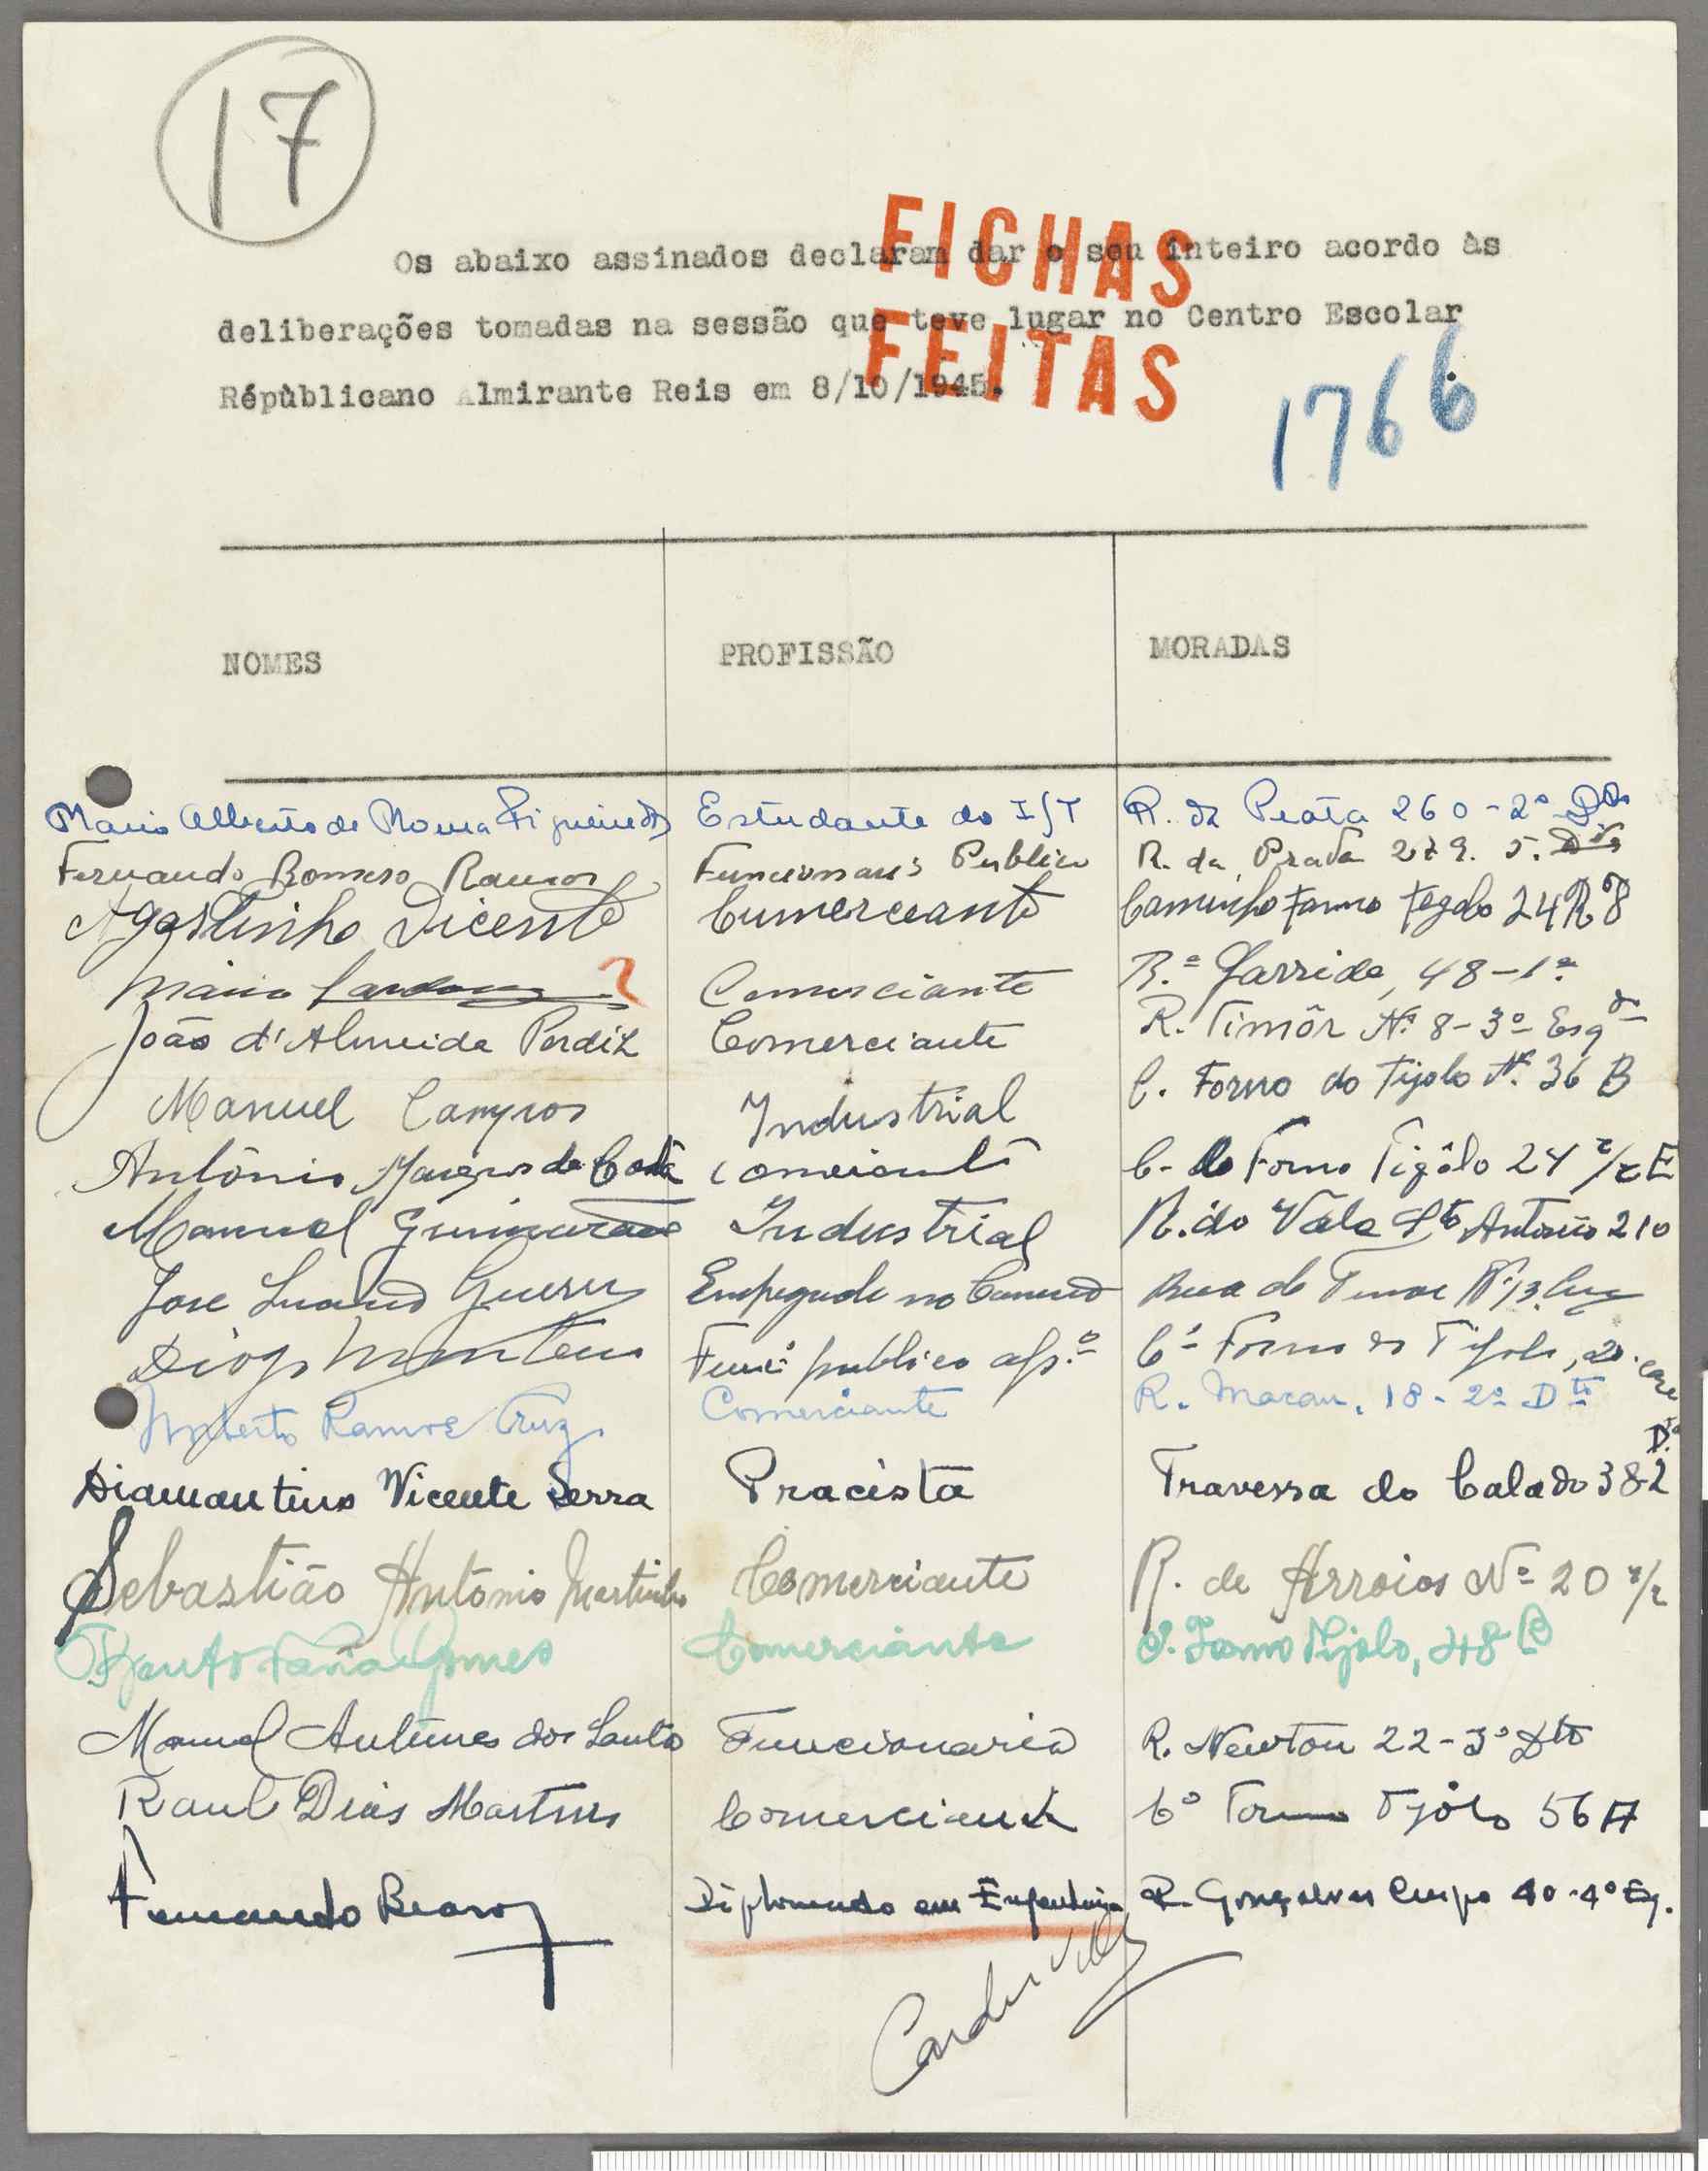 17
FICHAS
FEITAS
Os abaixo assinados declaram dar o seu inteiro acordo às
deliberações tomadas na sessão que teve lugar no Centro Escolar
Répùblicano Almirante Reis em 8/10/1945.
1766
NOMES PROFISSÃO MORADAS
Mario Alberto de Moura Figueiredo Estudante do IST R. da Prata 260-2º Dto
Fernando Romero Ramos Funcionario Publico R. da Prata 279. 5. Dto
Agostinho Vicente Cumerceante Caminho Forno Tegolo 24 R
Mário Cardoso ? Comerciante R.ª Garrida, 48-1º
João d'Almeida Perdiz Comerciante R. Timôr Nº 8-3º Esqdo
Manuel Campos Industrial C. Forno do Tijolo Nº 36 B
António Marques da Costa Comerciante C. do Forno Tigôlo 24 r/c E
Manuel Guimarães Industrial R. do Vale Sto Antonio 210
Jose Guerra Empregado no Comercio Rua de Timor Nº 13
Diogo Monteiro Func. publico apº Cº Forno do Tijolo, 20
Umberto Ramos Cruz Comerciante R. Macau, 18-2º Dto
Diamantino Vicente Serra Pracista Travessa do Calado 38 2 Dº
Sebastião António Martinho Comerciante R. de Arroios Nº 20 r/c
Faria Gomes Comerciante C. Forno Tijolo, 48 B
Manuel Antunes dos Santos Funcionario R. Newton 22-3º Dto
Raul Dias Martins Comerciante Cº Forno Tijolo 56 A
Fernando Diplomado em Engenharia R. Gonçalves Crespo 40-4º Eq.